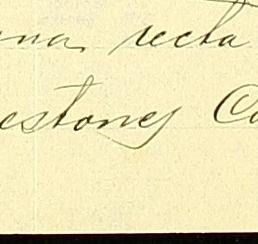 una recta
estones C